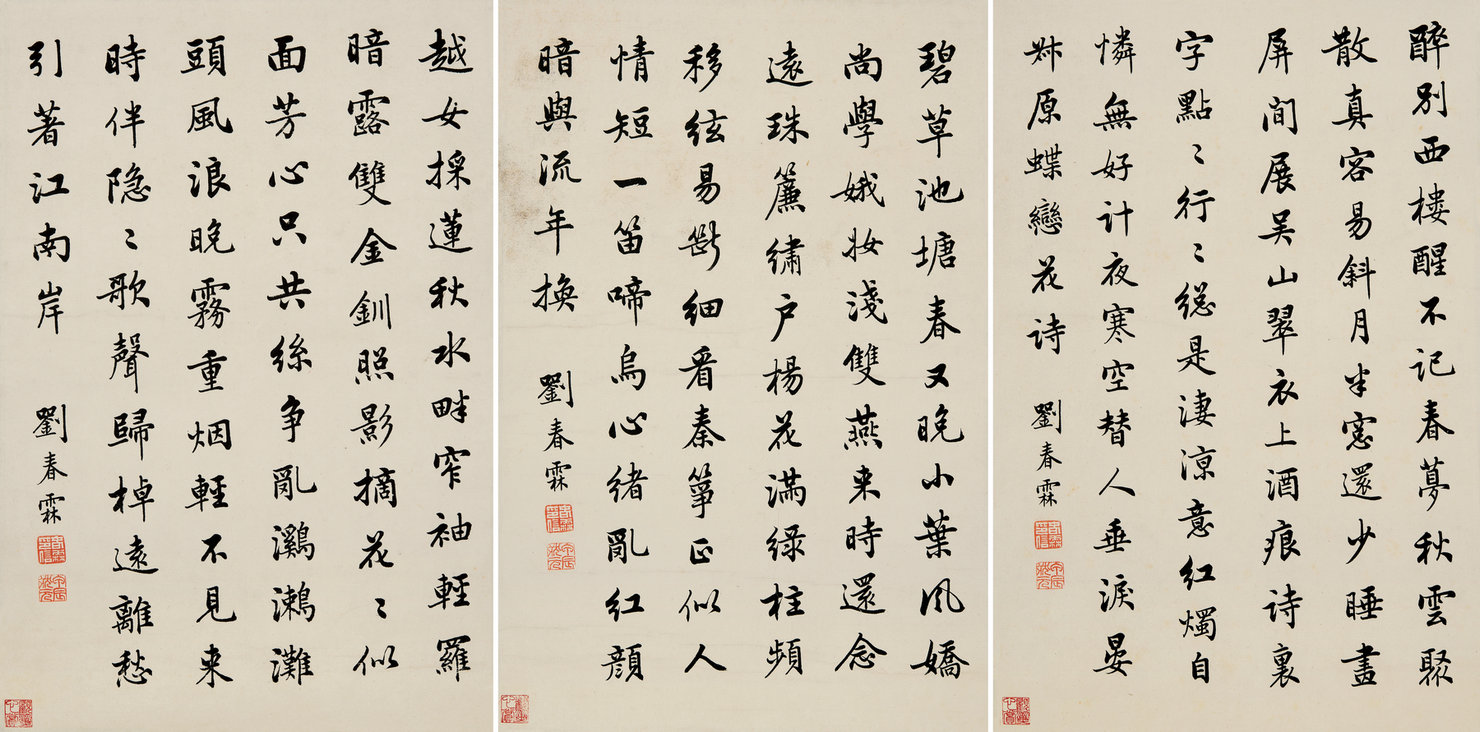 醉別西樓醒不記春夢秋雲聚
散真容易斜月半窓還少睡畫
屏間展吴山翠衣上酒痕诗裏
字點〻行〻總是淒涼意紅燭自
憐無好计夜寒空替人垂淚晏
原蝶戀花诗
劉春霖
碧草池塘春又晚小葉風嬌
尚學娥妝淺雙燕来時還念
遠珠簾繡户楊花满緑柱頻
移絃易斷细看秦箏正似人
情短一笛啼烏心绪亂红顔
暗與流年换
劉春霖
越女採蓮秋水畔窄袖輕羅
暗露雙金釧照影摘花〻似
面芳心只共絲争亂鸂鶒灘
頭風浪晚霧重烟輕不見来
時伴隐〻歌聲歸棹遠離愁
引著江南岸
劉春霖